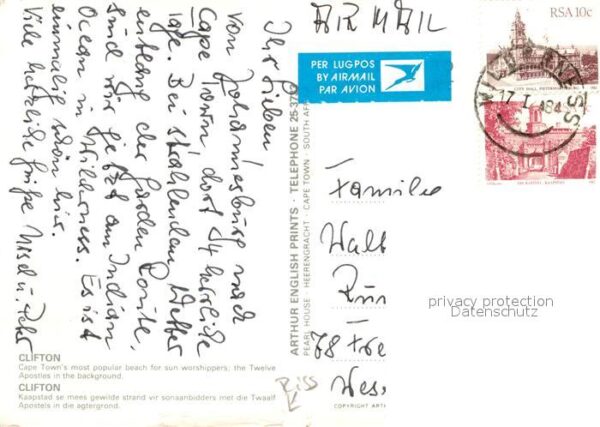 Ihr Lieben!
Von Johannesburg nach
Cape Town, dort 14 herrliche
Tage. Bei strahlendem Wetter
entlang der Garden Route,
sind wir jetzt am Indian
Ocean in Wilderness. Es ist
einmalig schön hier.
Viele herzliche Grüße Ursel u. Peter
CLIFTON
Cape Town's most popular beach for sun worshippers; the Twelve
Apostles in the background.
CLIFTON
Kaapstad se mees gewilde strand vir sonaanbidders met die Twaalf
Apostels in die agtergrond.
ARTHUR ENGLISH PRINTS · TELEPHONE 25-37
PEARL HOUSE · HEERENGRACHT · CAPE TOWN · SOUTH AFR
AIR MAIL
PER LUGPOS
BY AIRMAIL
PAR AVION
RSA 10c
CITY HALL, PIETERMARITZBURG
17 I 84
Familie
Walt
78
Riss
COPYRIGHT ART
privacy protection
Datenschutz